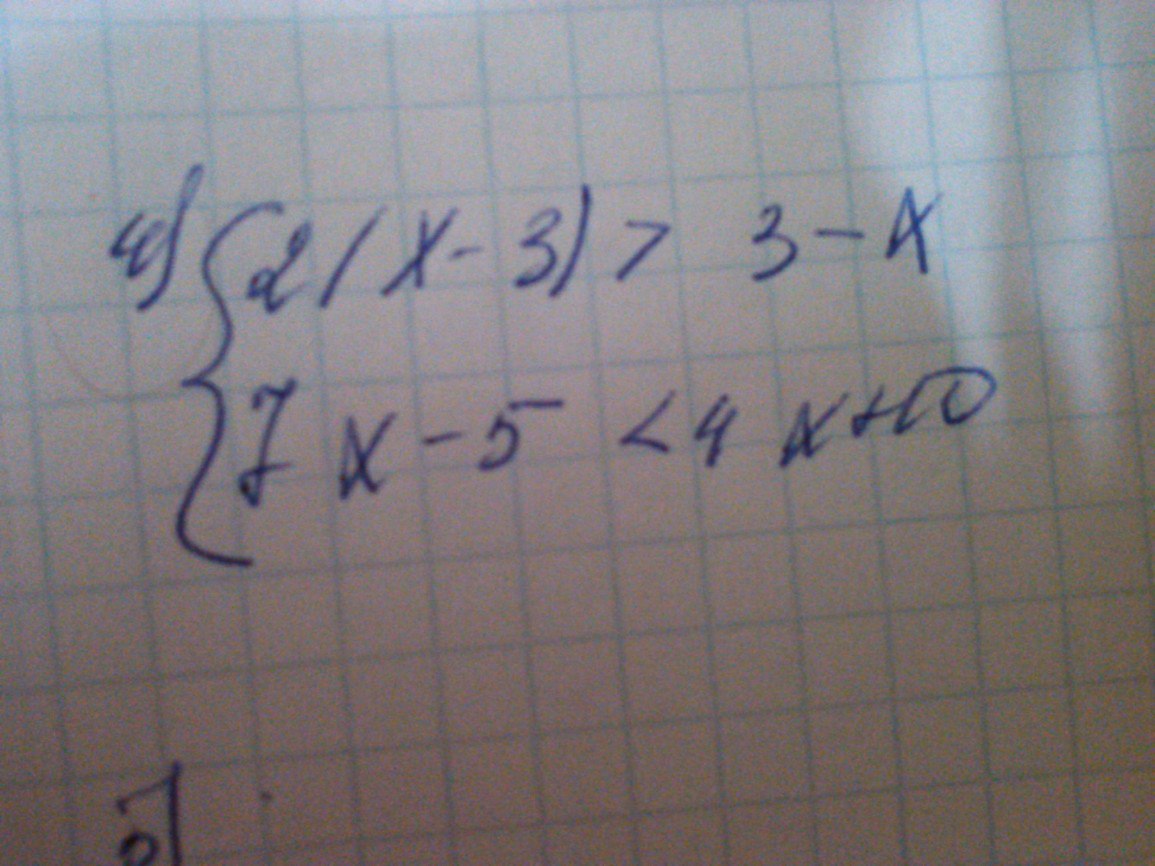 4) { 2(x - 3) > 3 - x
7x - 5 < 4x + 10
5)